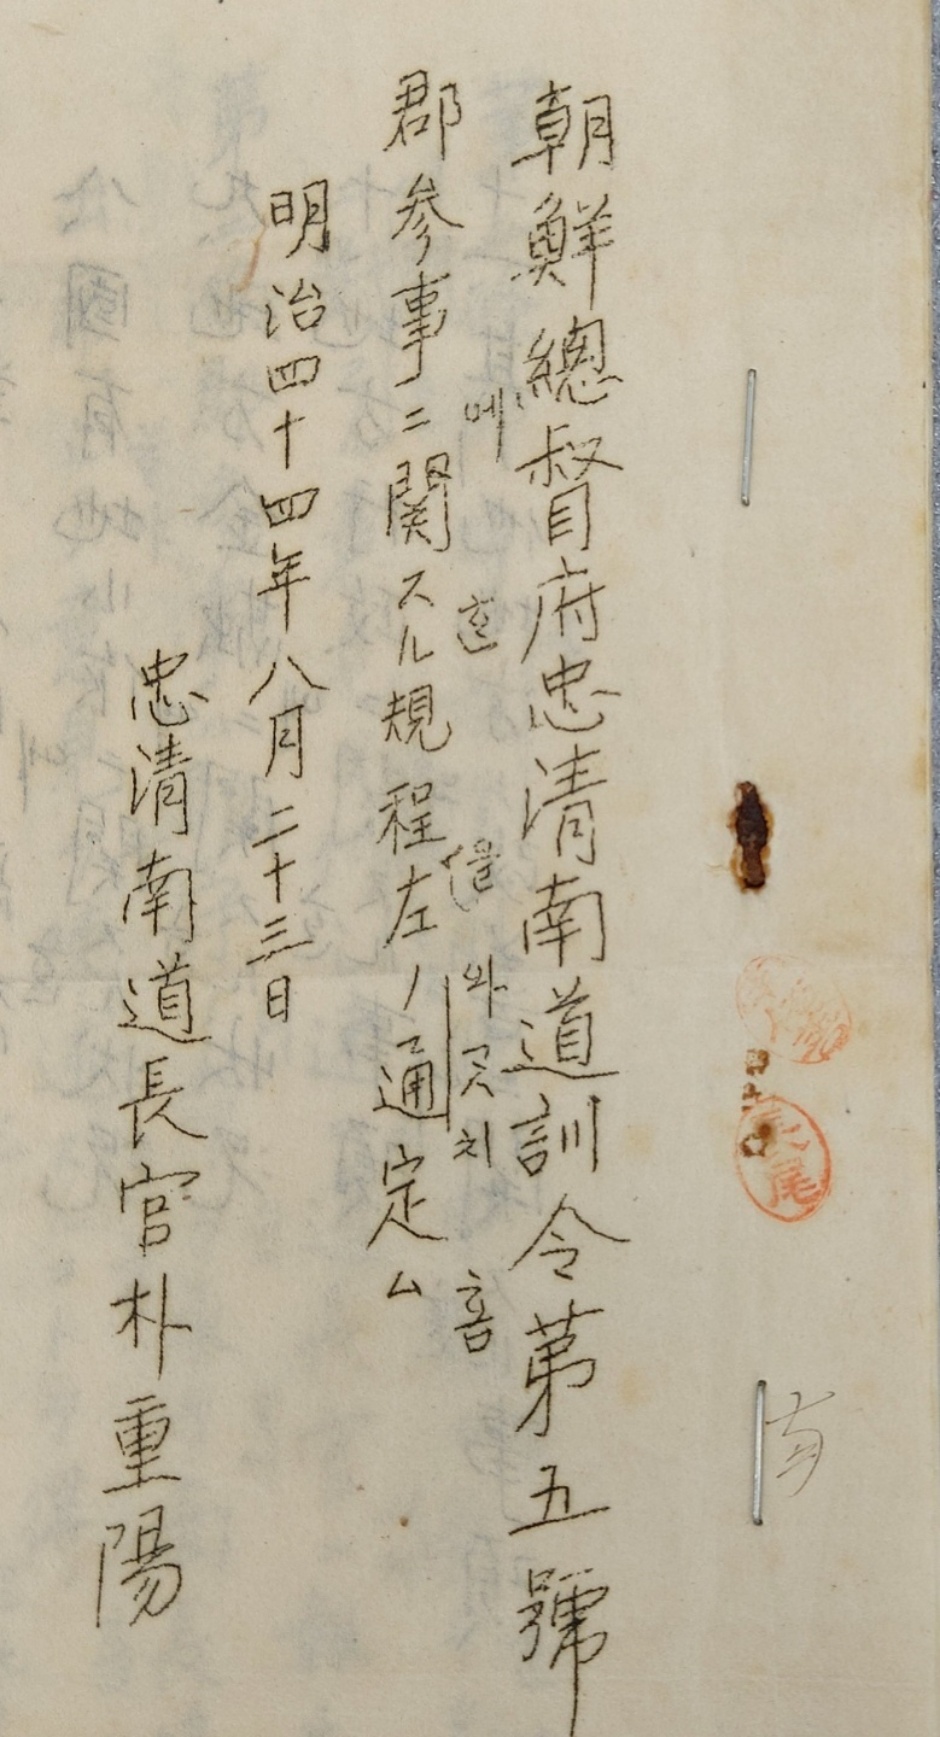 朝鮮總督府忠清南道訓令第五號
에 한 을 와 ᄀᆞᆺ치 홈
郡参事ニ関スル規程左ノ通定ム
明治四十四年八月二十三日
忠清南道長官朴重陽